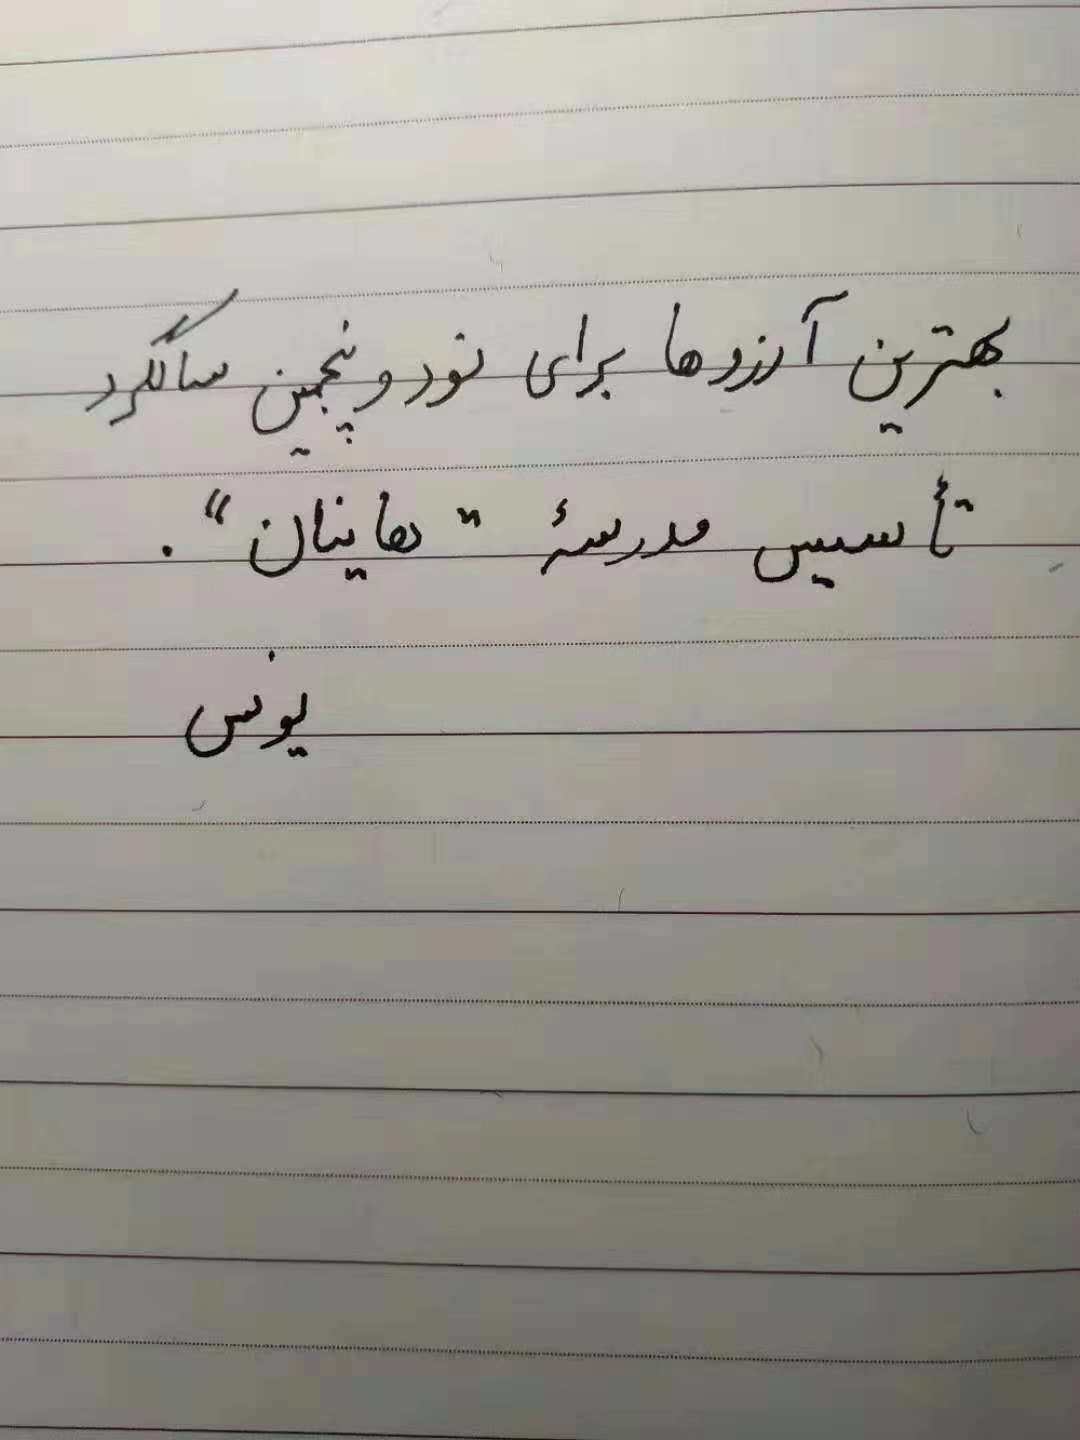 بهترین آرزوها برای نود و پنجمین سالگرد
تأسیس مدرسهٔ "هاینان".
یونس